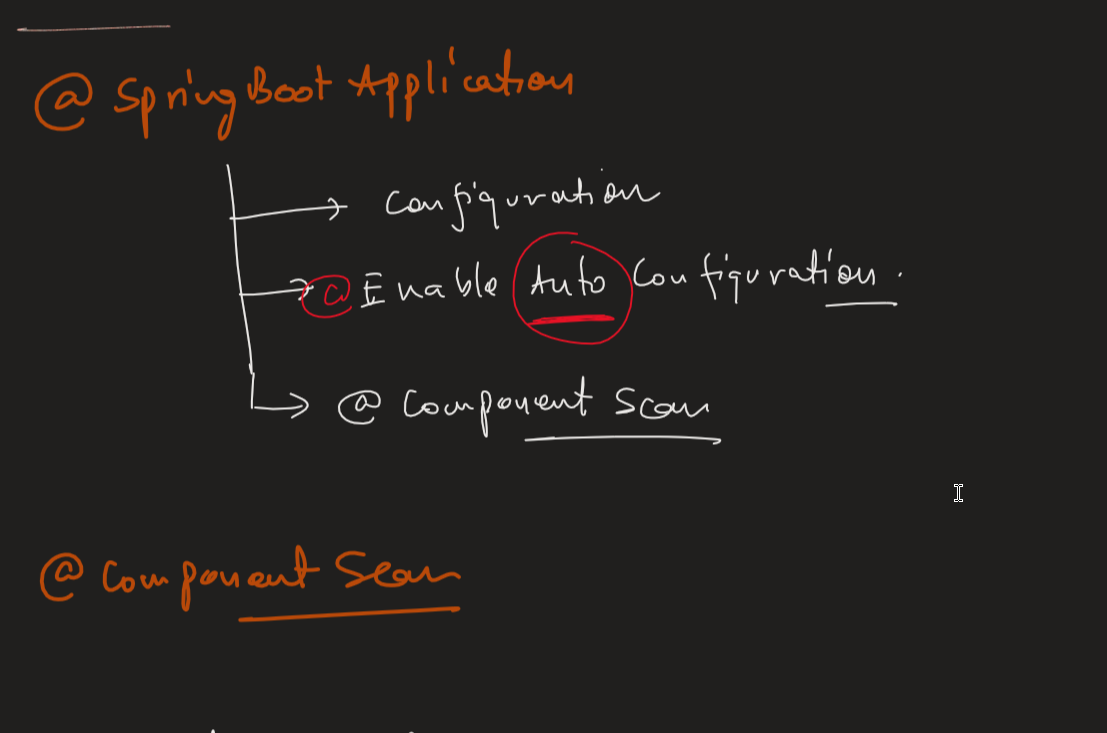 @ SpringBoot Application
Configuration
@ Enable Auto Configuration.
@ Component Scan
@ Component Scan